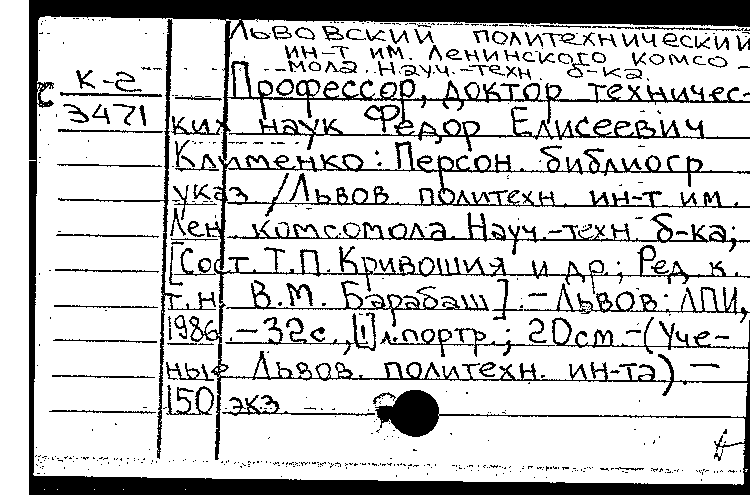 Львовский политехнический
ин-т им. Ленинского комсо-
мола. Науч.-техн. б-ка.
к-г
3471
Профессор, доктор техничес-
ких наук Федор Елисеевич
Клименко: Персон. библиогр
указ / Львов. политехн. ин-т им.
Лен. комсомола. Науч.-техн б-ка;
[Сост. Т.П. Кривошия и др.; Ред к.
т.н. В.М. Барабаш]. – Львов: ЛПИ,
1986. – 32с., [1]л. портр.; 20см – (Уче-
ные Львов. политехн. ин-та). –
150 экз